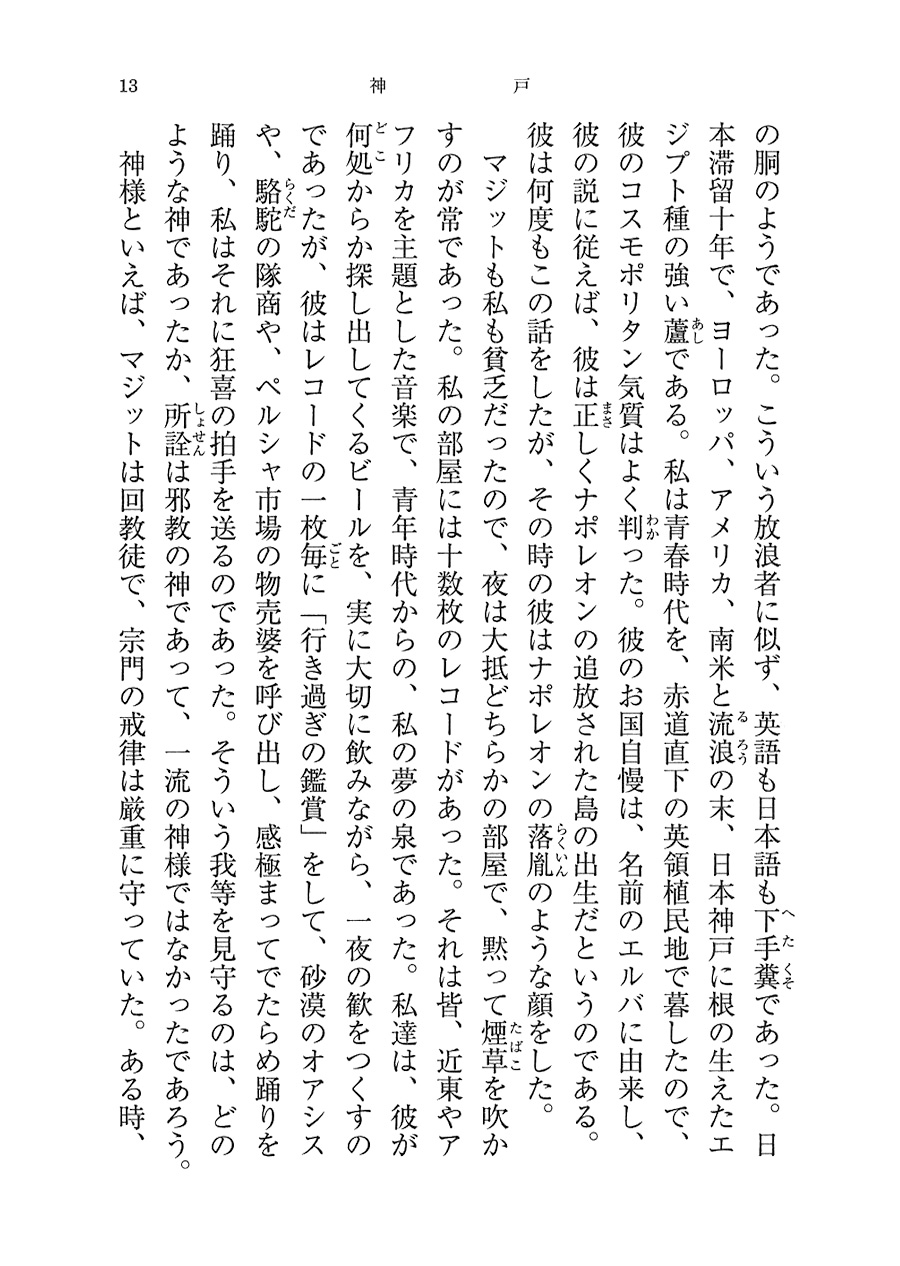 13　神　戸
の胴のようであった。こういう放浪者に似ず、英語も日本語も下手糞であった。日
本滞留十年で、ヨーロッパ、アメリカ、南米と流浪の末、日本神戸に根の生えたエ
ジプト種の強い蘆である。私は青春時代を、赤道直下の英領植民地で暮したので、
彼のコスモポリタン気質はよく判った。彼のお国自慢は、名前のエルバに由来し、
彼の説に従えば、彼は正しくナポレオンの追放された島の出生だというのである。
彼は何度もこの話をしたが、その時の彼はナポレオンの落胤のような顔をした。
マジットも私も貧乏だったので、夜は大抵どちらかの部屋で、黙って煙草を吹か
すのが常であった。私の部屋には十数枚のレコードがあった。それは皆、近東やア
フリカを主題とした音楽で、青年時代からの、私の夢の泉であった。私達は、彼が
何処からか探し出してくるビールを、実に大切に飲みながら、一夜の歓をつくすの
であったが、彼はレコードの一枚毎に「行き過ぎの鑑賞」をして、砂漠のオアシス
や、駱駝の隊商や、ペルシャ市場の物売婆を呼び出し、感極まってでたらめ踊りを
踊り、私はそれに狂喜の拍手を送るのであった。そういう我等を見守るのは、どの
ような神であったか、所詮は邪教の神であって、一流の神様ではなかったであろう。
神様といえば、マジットは回教徒で、宗門の戒律は厳重に守っていた。ある時、